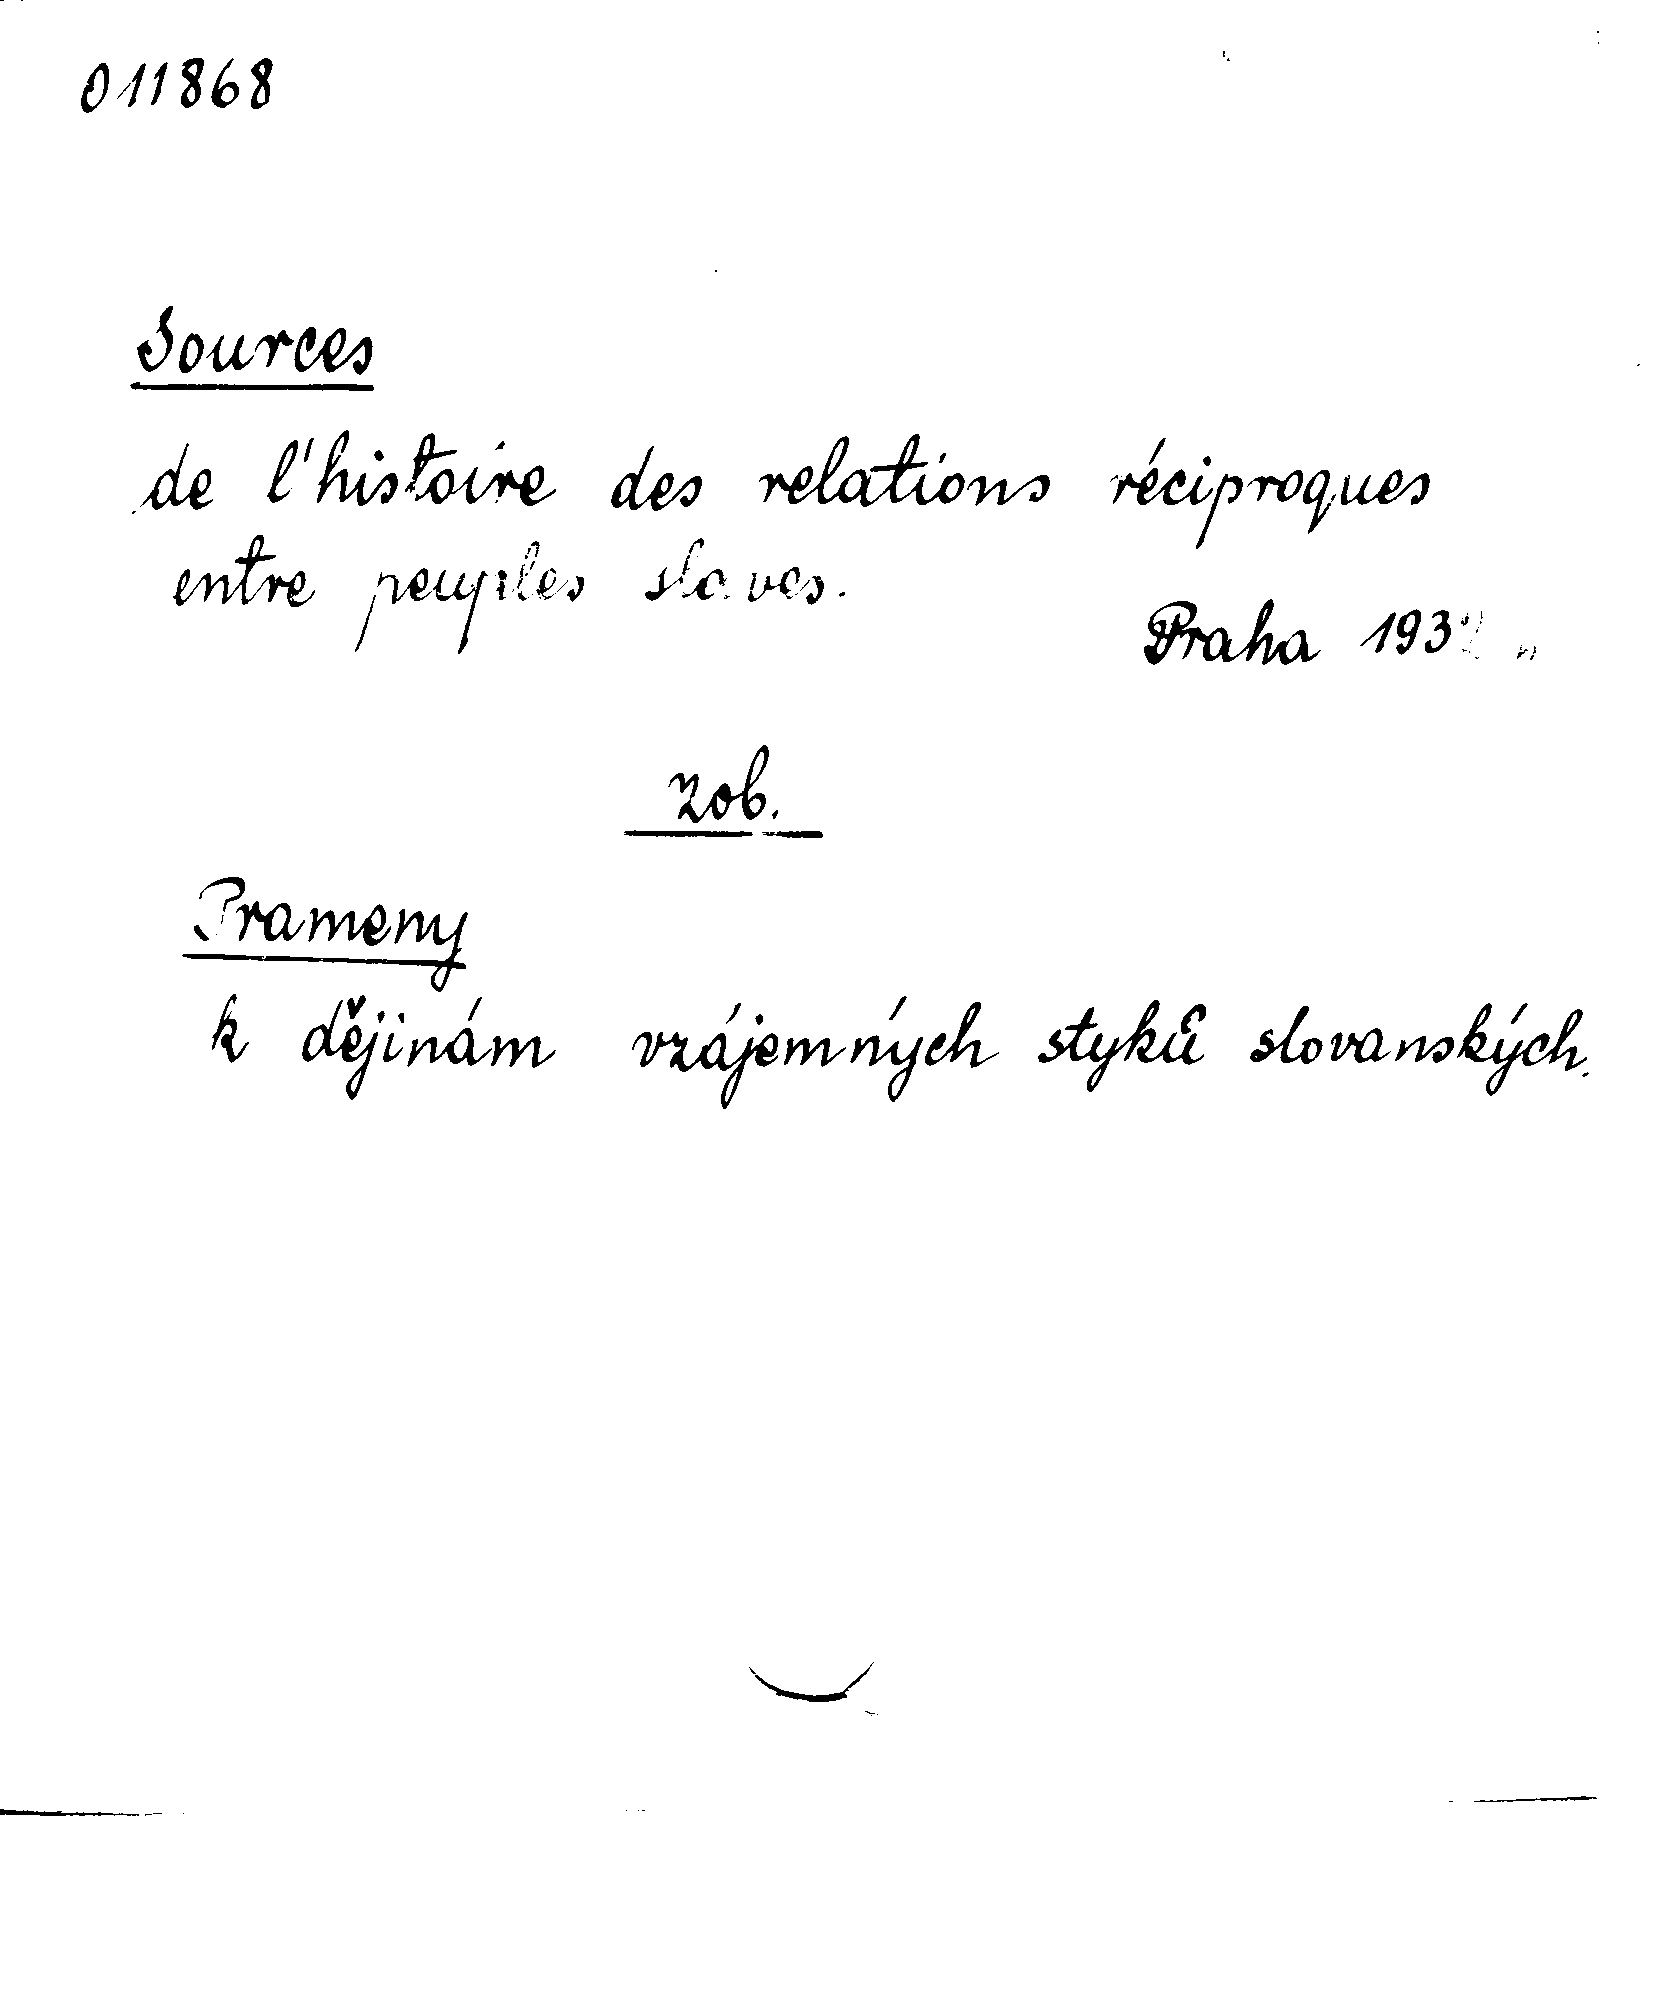 011868
Sources
de l'histoire des relations réciproques
entre peuples slaves.
Praha
zob.
Prameny
k dějinám vzájemných styků slovanských.